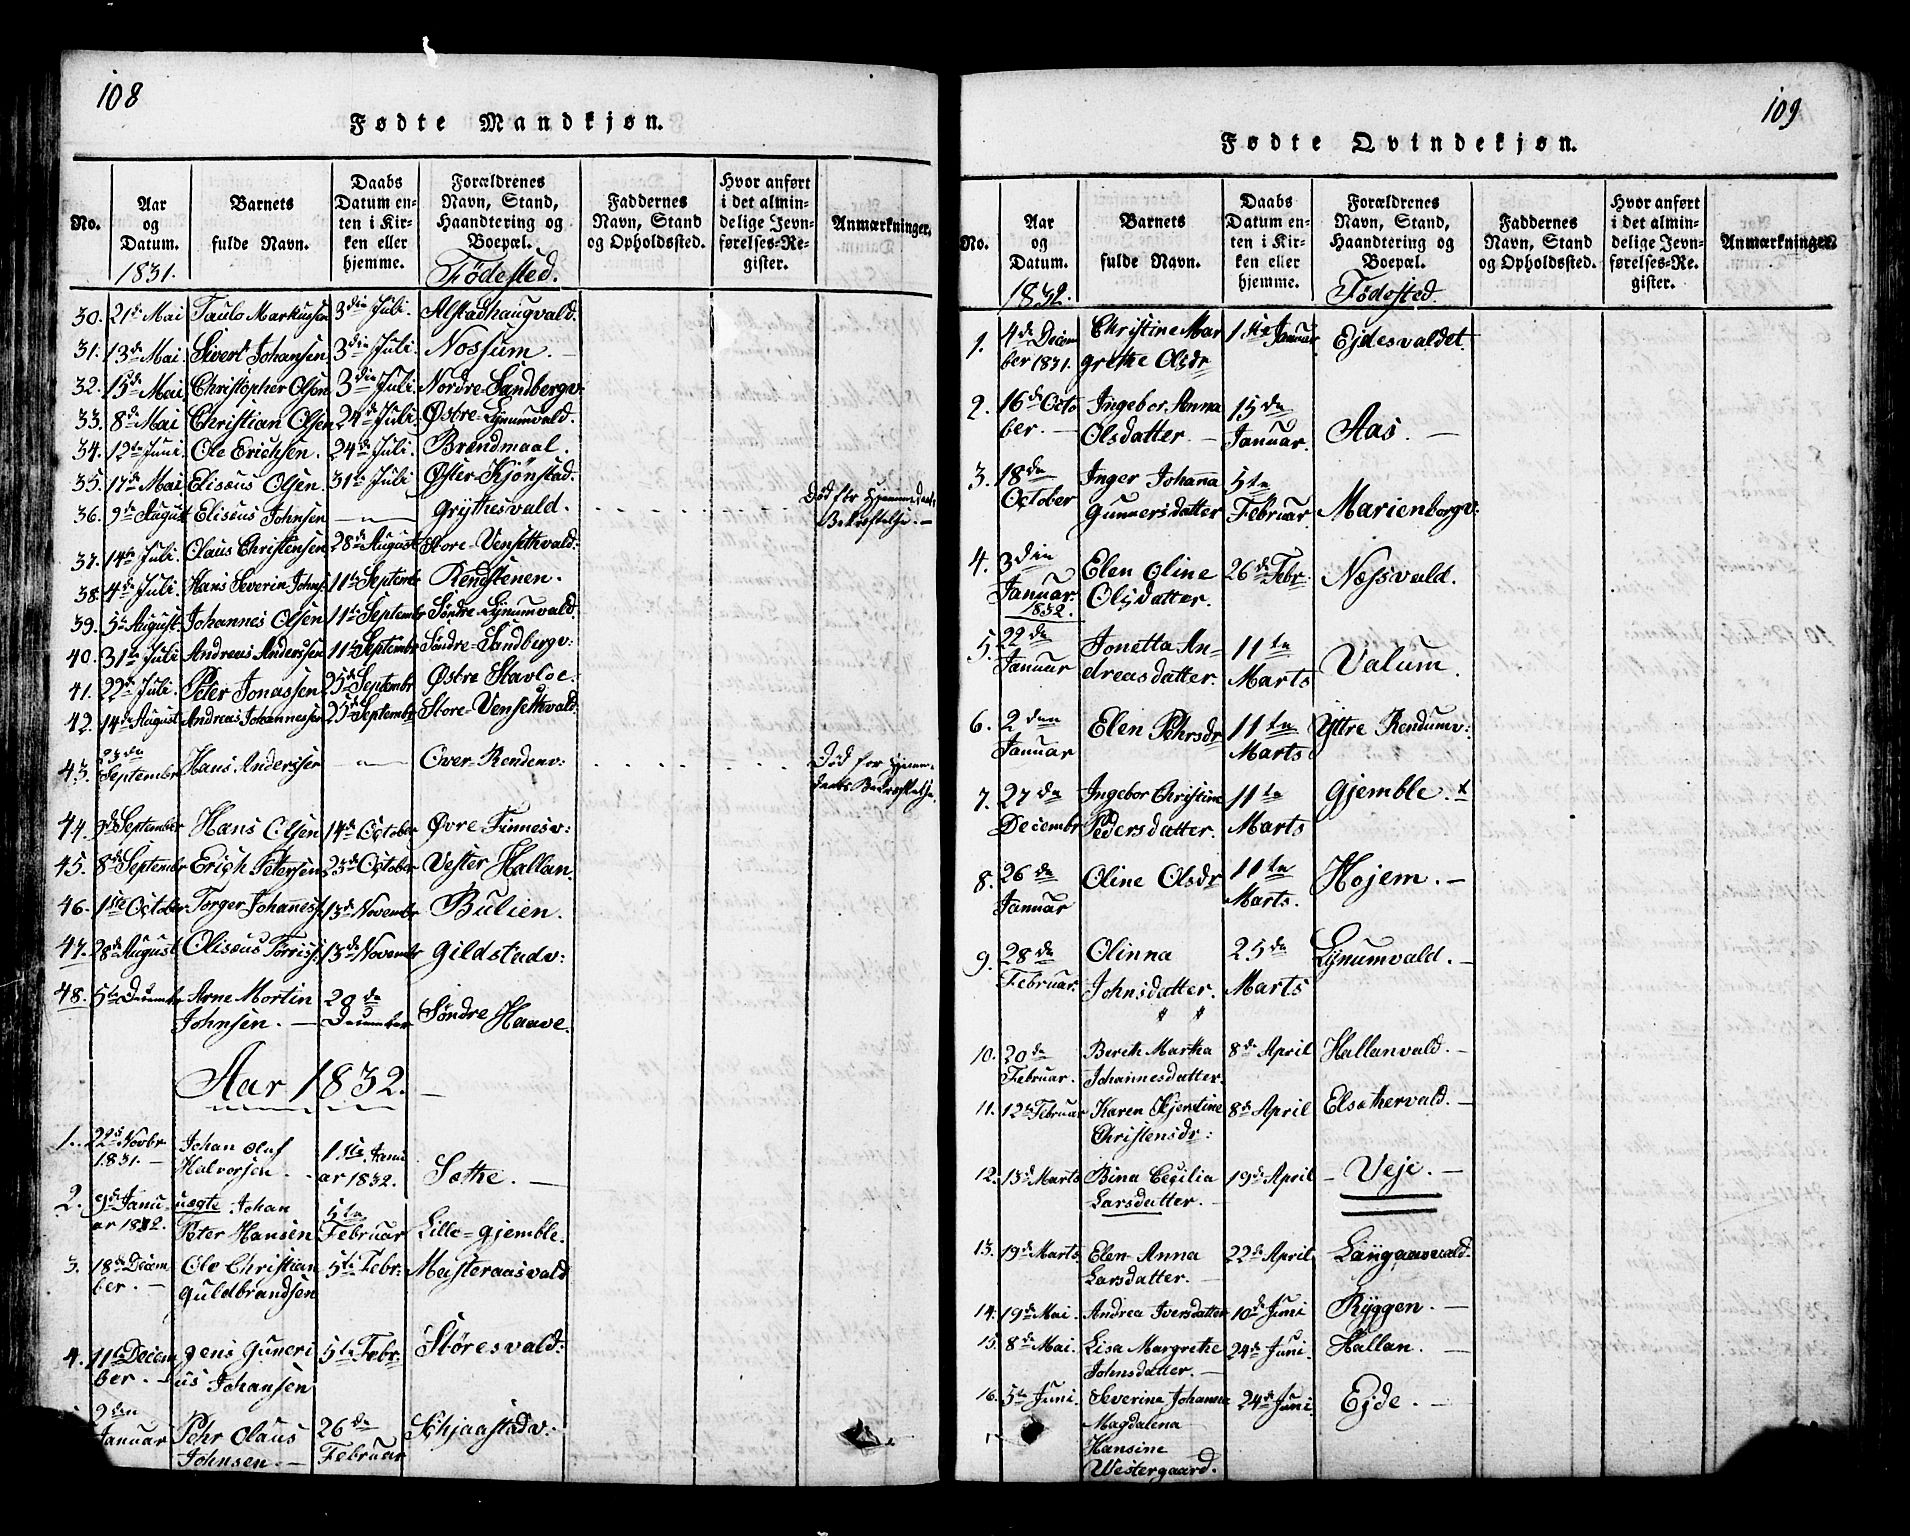 108
Fødte Mandkjøn.
No.
Aar og Datum.
1831.
Barnets fulde Navn.
Daabs Datum enten i Kirken eller hjemme.
Forældrenes Navn, Stand, Haandtering og Boepæl.
Fødested.
Faddernes Navn, Stand og Opholdssted.
Hvor anført i det almindelige Jevnførelses-Register.
Anmærkninger.
30. 21de Mai Paulo Markussen 3die Juli. Alstadhaugvald.
31. 13de Mai Sivert Johansen 3die Juli Nossum. —
32. 15de Mai Christopher Olsen 3die Juli Nordre-Sandbergv:
33. 8de Mai Christian Olsen 24de Juli. Østre-Lynumvald.
34. 12te Juni Ole Erichsen. 24de Juli. Brændmaal.
35. 17de Mai Elisæus Olsen 31te Juli Øster-Kjønstad.
36. 9de August Eliseus Johnsen —"— Grythesvald. Død før Hjemmedaabs
Bekræftelse. —
37. 14te Juli. Claus Christensen 28de August Store-Vensettvald:
38. 4de Juli. Hans Severin Johns: 11te Septembr Rendstenen.
39. 5te August. Johannes Olsen 11te Septembr Søndre-Lynumvald.
40. 31te Juli Andreas Anderssen 11te Septembr Søndre-Sandbergv:
41. 22de Juli. Peter Jonassen 25de Septembr Østre Stavloe.
42. 14de August Andreas Johannessen 25de Septembr Store-Vensettvald.
43. 23de September Hans Anderssen —"— Over-Rendenv: Død før Hjemmedaabs Bekræftelse.
44. 9de September Hans Olsen 14de October Øvre-Finnesv:
45. 8de Septembr Erich Petersen 23de October Vester Hallan.
46. 1ste October Torger Johannesf. 13de Novembr Bulien.
47. 28de August Olisæus Torriss: 13de Novembr Gildstadv:
48. 5te Decembr Arne Mortin 20de
Johnsen. — December Søndre Haave.
Aar 1832. —
1. 22de Novbr Johan Oluf 1ste Janu
1831. — Halvorsen. ar 1832. Sæthe. —
2. 9de Janu uægte Johan 5te
ar 1832. Peter Hansen Februar Lille-Gjemble.
3. 18de Decem Ole Christian 5te Febr: Mejsteraasvald
ber. — Guldbrandsen
4. 11te Decem Jens Guneri 5te Febr: Støresvald:
ber. — us Johansen
9den Januar Pehr Olaus 26de Schjaastadv:
Johnsen. — Februar
109
Fødte Qvindekjøn.
No.
Aar og Datum.
1832.
Barnets fulde Navn.
Daabs Datum enten i Kirken eller hjemme.
Forældrenes Navn, Stand, Haandtering og Boepæl.
Fødested.
Faddernes Navn, Stand og Opholdssted.
Hvor anført i det almindelige Jevnførelses-Register.
Anmærkninger.
1. 4de Decem Christine Mar 1ste Januar Ejdesvaldet.
ber 1831. grethe Olsdr
2. 16de Octo Ingebor Anna 15de
ber. — Olsdatter. — Januar. Aas. —
3. 18de Inger Johana 5te
October Gunnersdatter Februar Marienborgv:
4. 3die Elen Oline 26de Febr. Næssvald.
Januar 1832. Olsdatter.
5. 22de Jonetta An- 11te
Januar dreasdatter. Marts Valum.
6. 2den Elen Pehrsdr 11te Yttre Rendumv:
Januar Marts
7. 27de Ingebor Christine 11te Gjemble. +
Decembr Pedersdatter. Marts
8. 26de Oline Olsdr 11te Hojem. —
Januar Marts.
9. 28de Olinna 25de Lynumvald. —
Februar. Johnsdatter. Marts
" "
10. 20de Bereth Martha 8de April Hallanvald. —
Februar. Johannesdatter.
11. 12te Februar Karen Kjerstine 8de April Elsethervald. —
Christensdr:
12. 13de Marts Bina Cecilia 19de April — Veje. —
Larsdatter. —
13. 19de Marts Elen Anna 22de April Langaasvald.
Larsdatter. —
14. 19de Mai. Andrea Iversdatter 10de Juni Ryggen. —
15. 8de Mai. Lisa Margrethe 24de Juni Hallan. —
Johnsdatter. —
16. 5te Juni. Severine Johanne 24de Juni Ejde. —
Magdalena
Hansine
Westergaard.